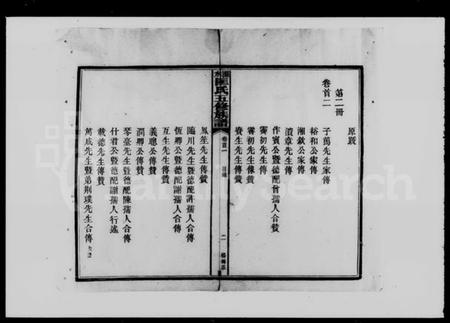 第二冊
卷首二
原跋
子萬先生家傳
裕和公家傳
湘歗公家傳
漬章先生傳
作賓公暨德配曾孺人合贊
霽初先生傳
霽初先生像贊
賚生先生傳贊
氏五修族譜
卷首
目錄
二
鳳笙先生傳贊
臨川先生暨德配許孺人合傳
恆卿公暨德配謝孺人合傳
互生先生傳贊
義聰公傳贊
潤卿公傳贊
琴臺先生暨德配陳孺人合傳
什君公暨德配謝孺人行述
載德先生傳贊
篤成先生暨弟荆璞先生合傳
FamilySearch